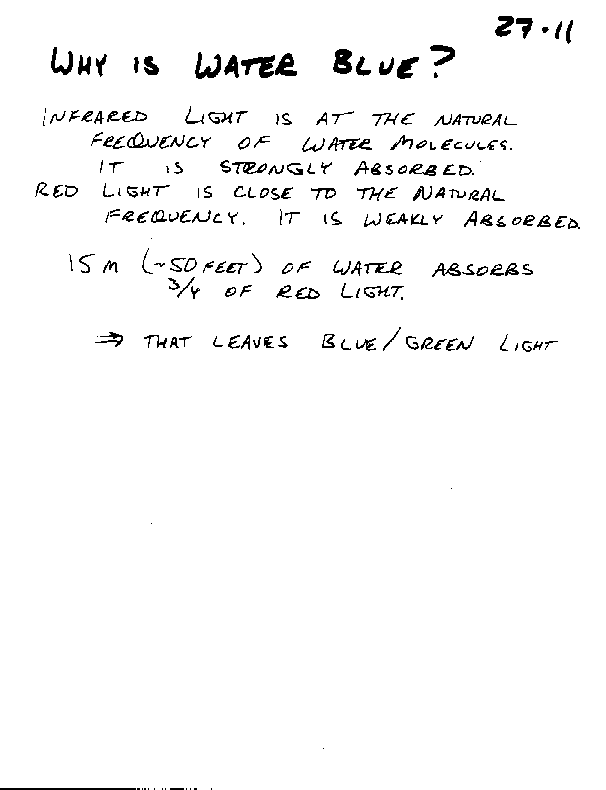 27-11
WHY IS WATER BLUE?
INFRARED LIGHT IS AT THE NATURAL
FREQUENCY OF WATER MOLECULES.
IT IS STRONGLY ABSORBED.
RED LIGHT IS CLOSE TO THE NATURAL
FREQUENCY. IT IS WEAKLY ABSORBED.
15 M (~50 FEET) OF WATER ABSORBS
3/4 OF RED LIGHT.
⇒ THAT LEAVES BLUE/GREEN LIGHT